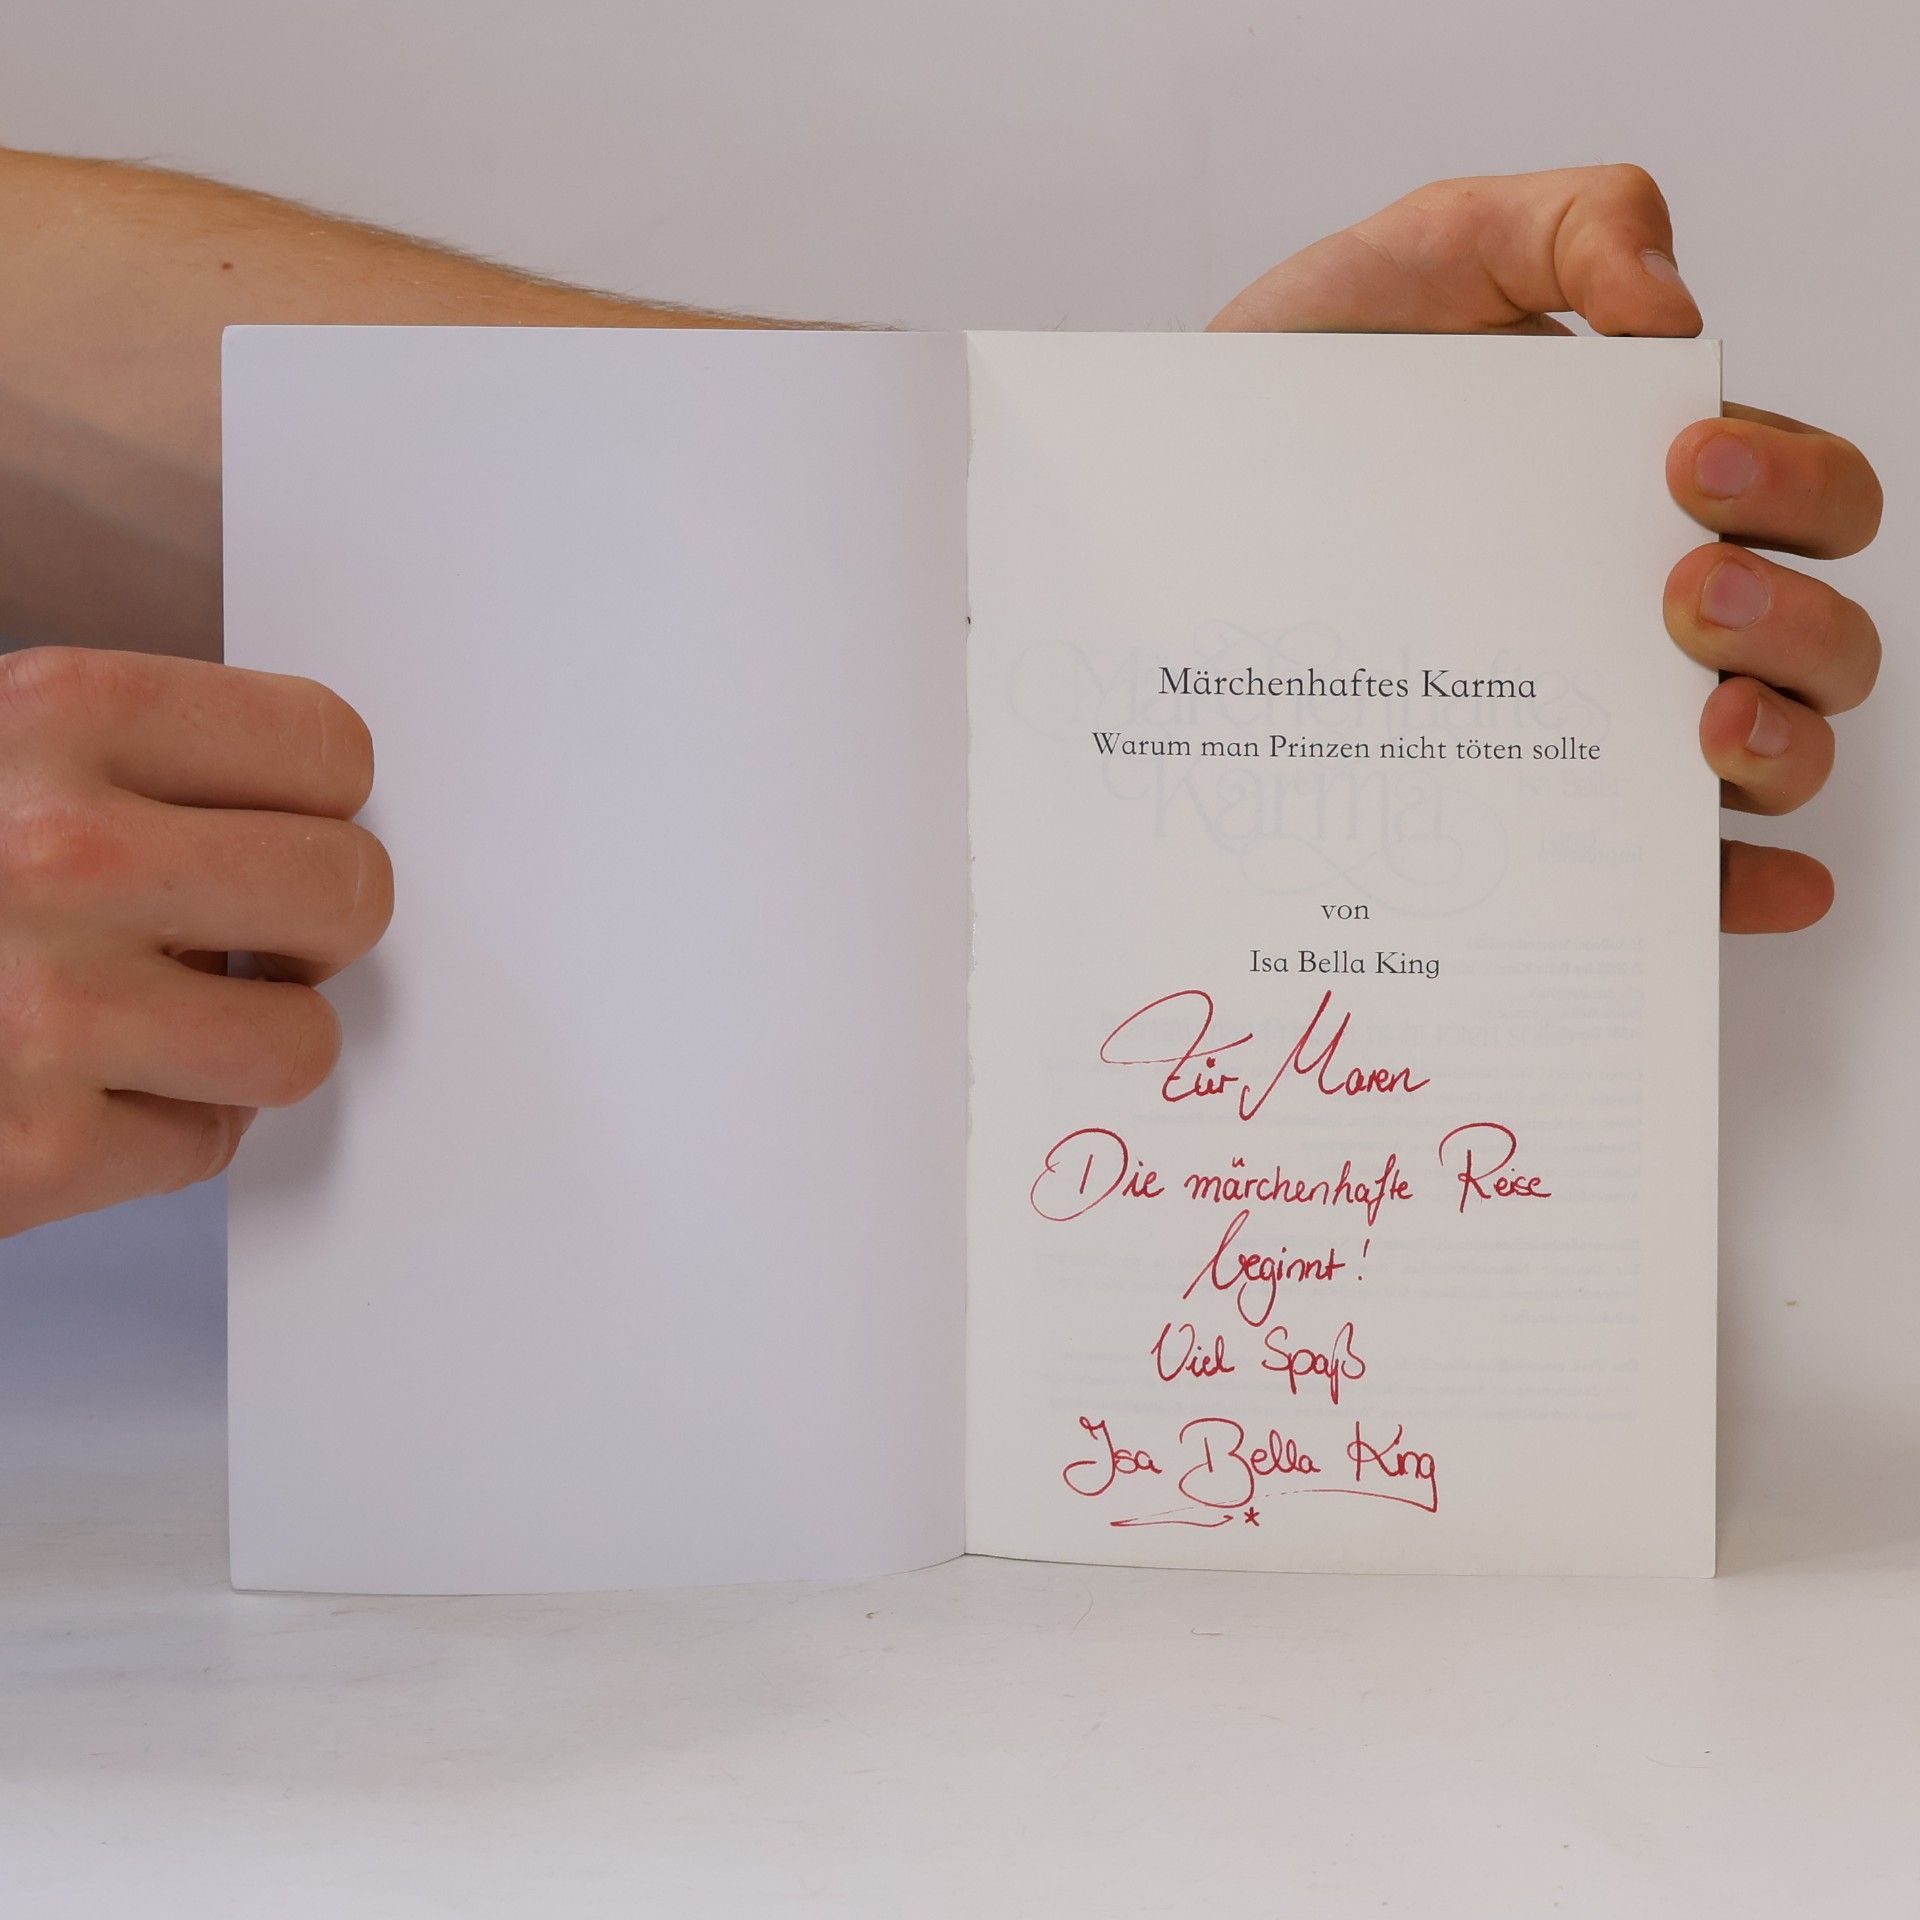 Märchenhaftes Karma
Warum man Prinzen nicht töten sollte
von
Isa Bella King
Für Maren
Die märchenhafte Reise
beginnt!
Viel Spaß
Isa Bella King
*